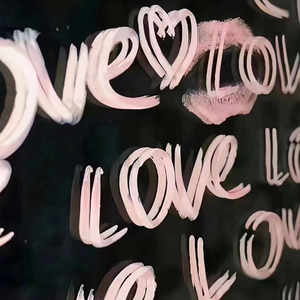 ove ♡ Lov
e Love Lo
e Lov